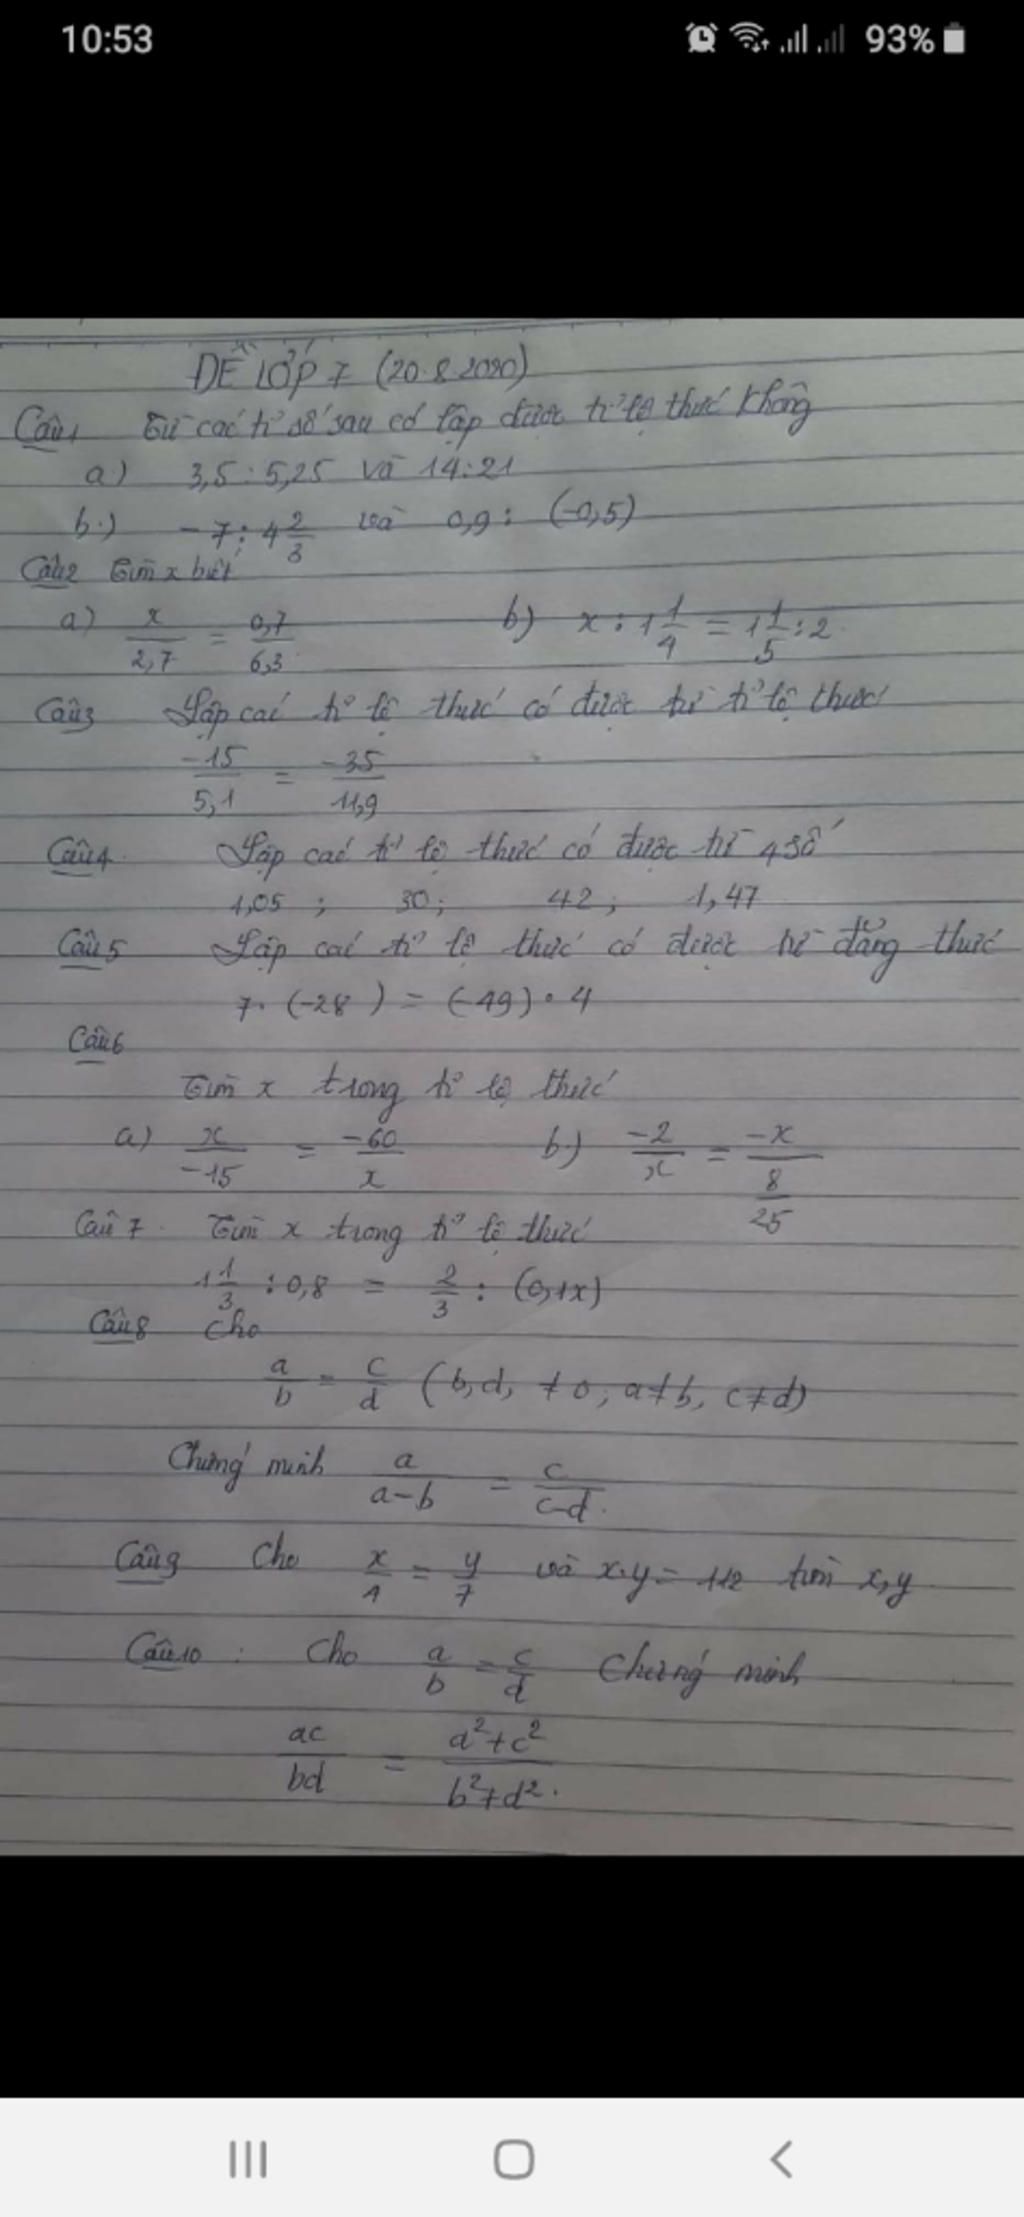 10:53 93%
ĐỀ LỚP 7 (20.8.2020)
Câu1 Từ các tỉ số sau có lập được tỉ lệ thức không
a) 3,5 : 5,25 và 14:21
b.) -7 : 4 2/3 và 0,9 : (-0,5)
Câu2 Tìm x biết
a) x/2,7 = 0,7/6,3 b) x : 1 1/4 = 1 1/5 : 2
Câu3 Lập các tỉ lệ thức có được từ tỉ lệ thức
-15/5,1 = -35/11,9
Câu4 Lập các tỉ lệ thức có được từ 4 số
1,05 ; 30; 42; 1,47
Câu5 Lập các tỉ lệ thức có được từ đẳng thức
7. (-28) = (-49) . 4
Câu6
Tìm x trong tỉ lệ thức
a) x/-15 = -60/x b.) -2/x = -x/(8/25)
Câu 7. Tìm x trong tỉ lệ thức
1 1/3 : 0,8 = 2/3 : (0,1x)
Câu8 Cho
a/b = c/d (b,d, ≠ 0; a≠b, c≠d)
Chứng minh a/(a-b) = c/(c-d).
Câu9 Cho y/7 và x.y = 112 tìm x,y
Câu10 : Cho a/b = c/d Chứng minh
ac/bd = (a²+c²)/(b²+d²).